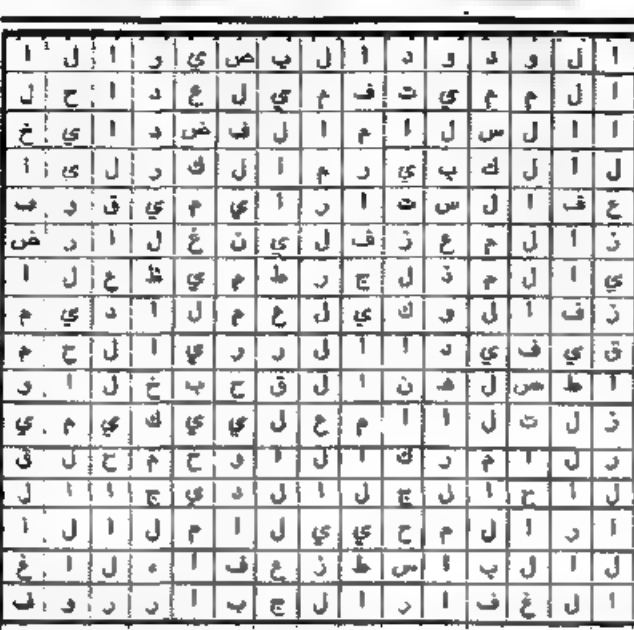 ا ل و د و د ا ل ب ص ي ر ا ل ا
ا ل م م ي ت ف م ي ل ع د ا ح ل
ا ا ل س ل ا م ا ل ف ض د ا ي خ
ل ا ل ك ب ي ر م ا ل ك ر ل ى ا
ع ف ا ل س ت ا ر ا ي م ي ق ر ب
ز ا ل م ع ز ف ل ي ن غ ل ا ر ض
ي ا ل م ذ ل ج ر ط م ي ظ ع ل ا
ز ف ا ل و ك ي ل ع م ل ا د ي م
ق ي ف ي د ا ا ل ر ر ي ا ل ح م
ا ط ص ل ه ن ا ل ق ح ب خ ل ا ر
ز ل ت ل ا ا م ع ل ي ي ك ي م ي
ر ل ا م ر ك ا ل ا ر ح م ح ل ق
ل ا ح ا ل ج ل ا ل د ي ج ا ا ل
ا ر ا ل م ح ي ي ل ا م ل ا ل ا
ل ا ل ب ا س ط ز ع ف ا ء ل ا غ
ا ل غ ف ا ر ا ل ج ب ا ر ر و ف